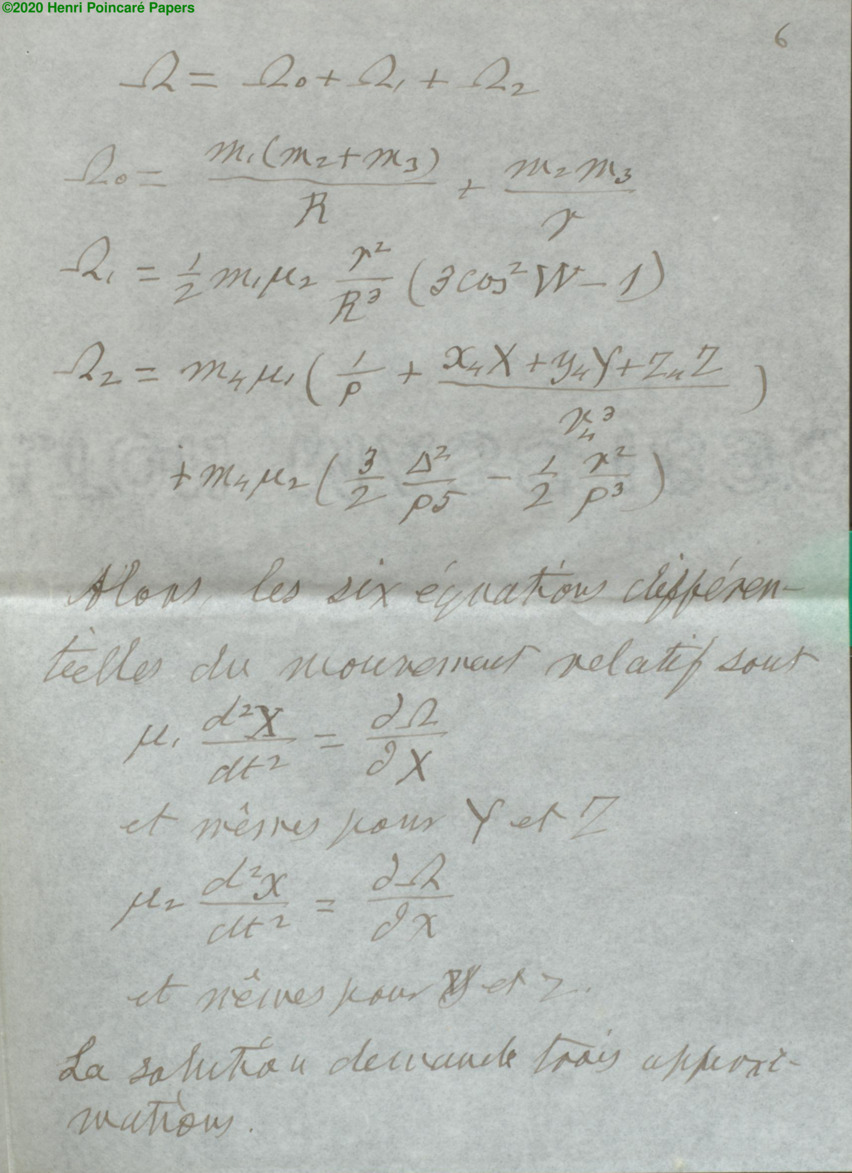 ©2020 Henri Poincaré Papers
6
Ω = Ω₀ + Ω₁ + Ω₂
Ω₀ = m₁(m₂+m₃)/R + m₂m₃/r
Ω₁ = 1/2 m₁μ₂ r²/R³ (3cos²W − 1)
Ω₂ = m₄μ₁ (1/ρ + (x₄X + y₄Y + z₄Z)/r₄³)
+ m₄μ₂ (3/2 Δ²/ρ5 − 1/2 r²/ρ³)
Alors, les six équations différen-
tielles du mouvement relatif sont
μ₁ d²X/dt² = ∂Ω/∂X
et mêmes pour Y et Z
μ₂ d²x/dt² = ∂Ω/∂x
et mêmes pour y et z.
La solution demande trois approxi-
mations.